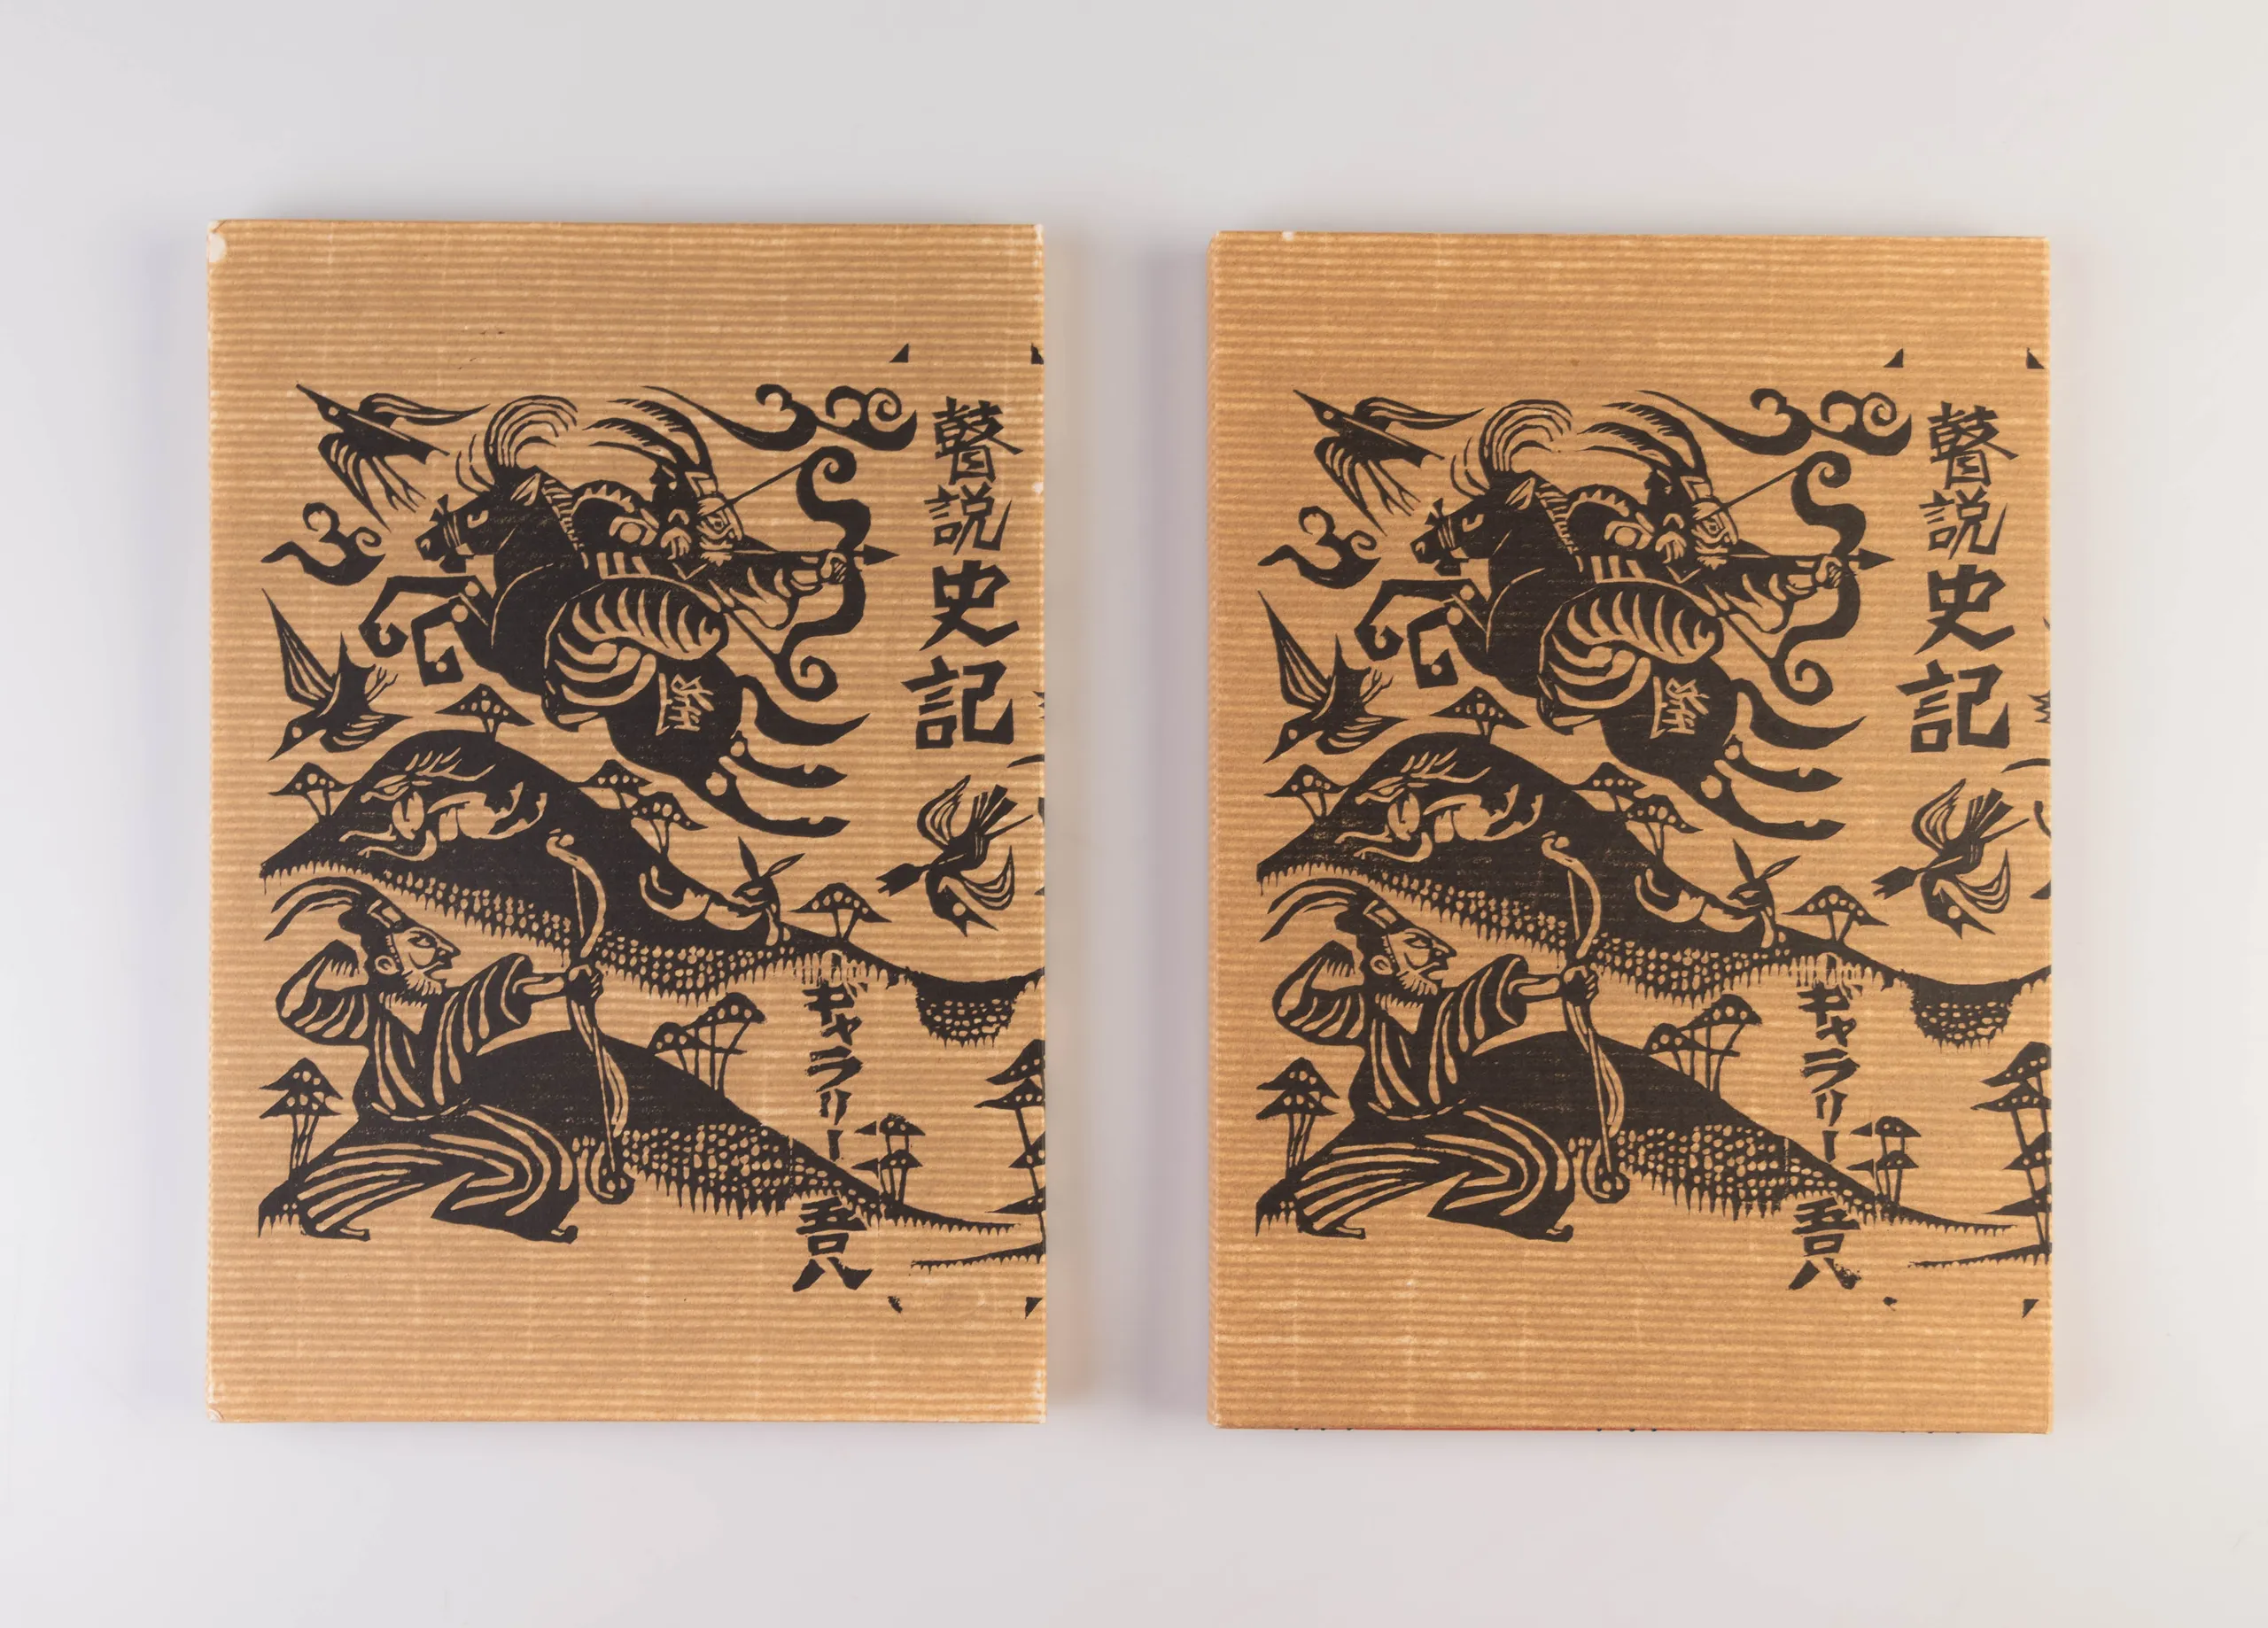 瞽説史記
ギャラリー
吾八
瞽説史記
ギャラリー
吾八